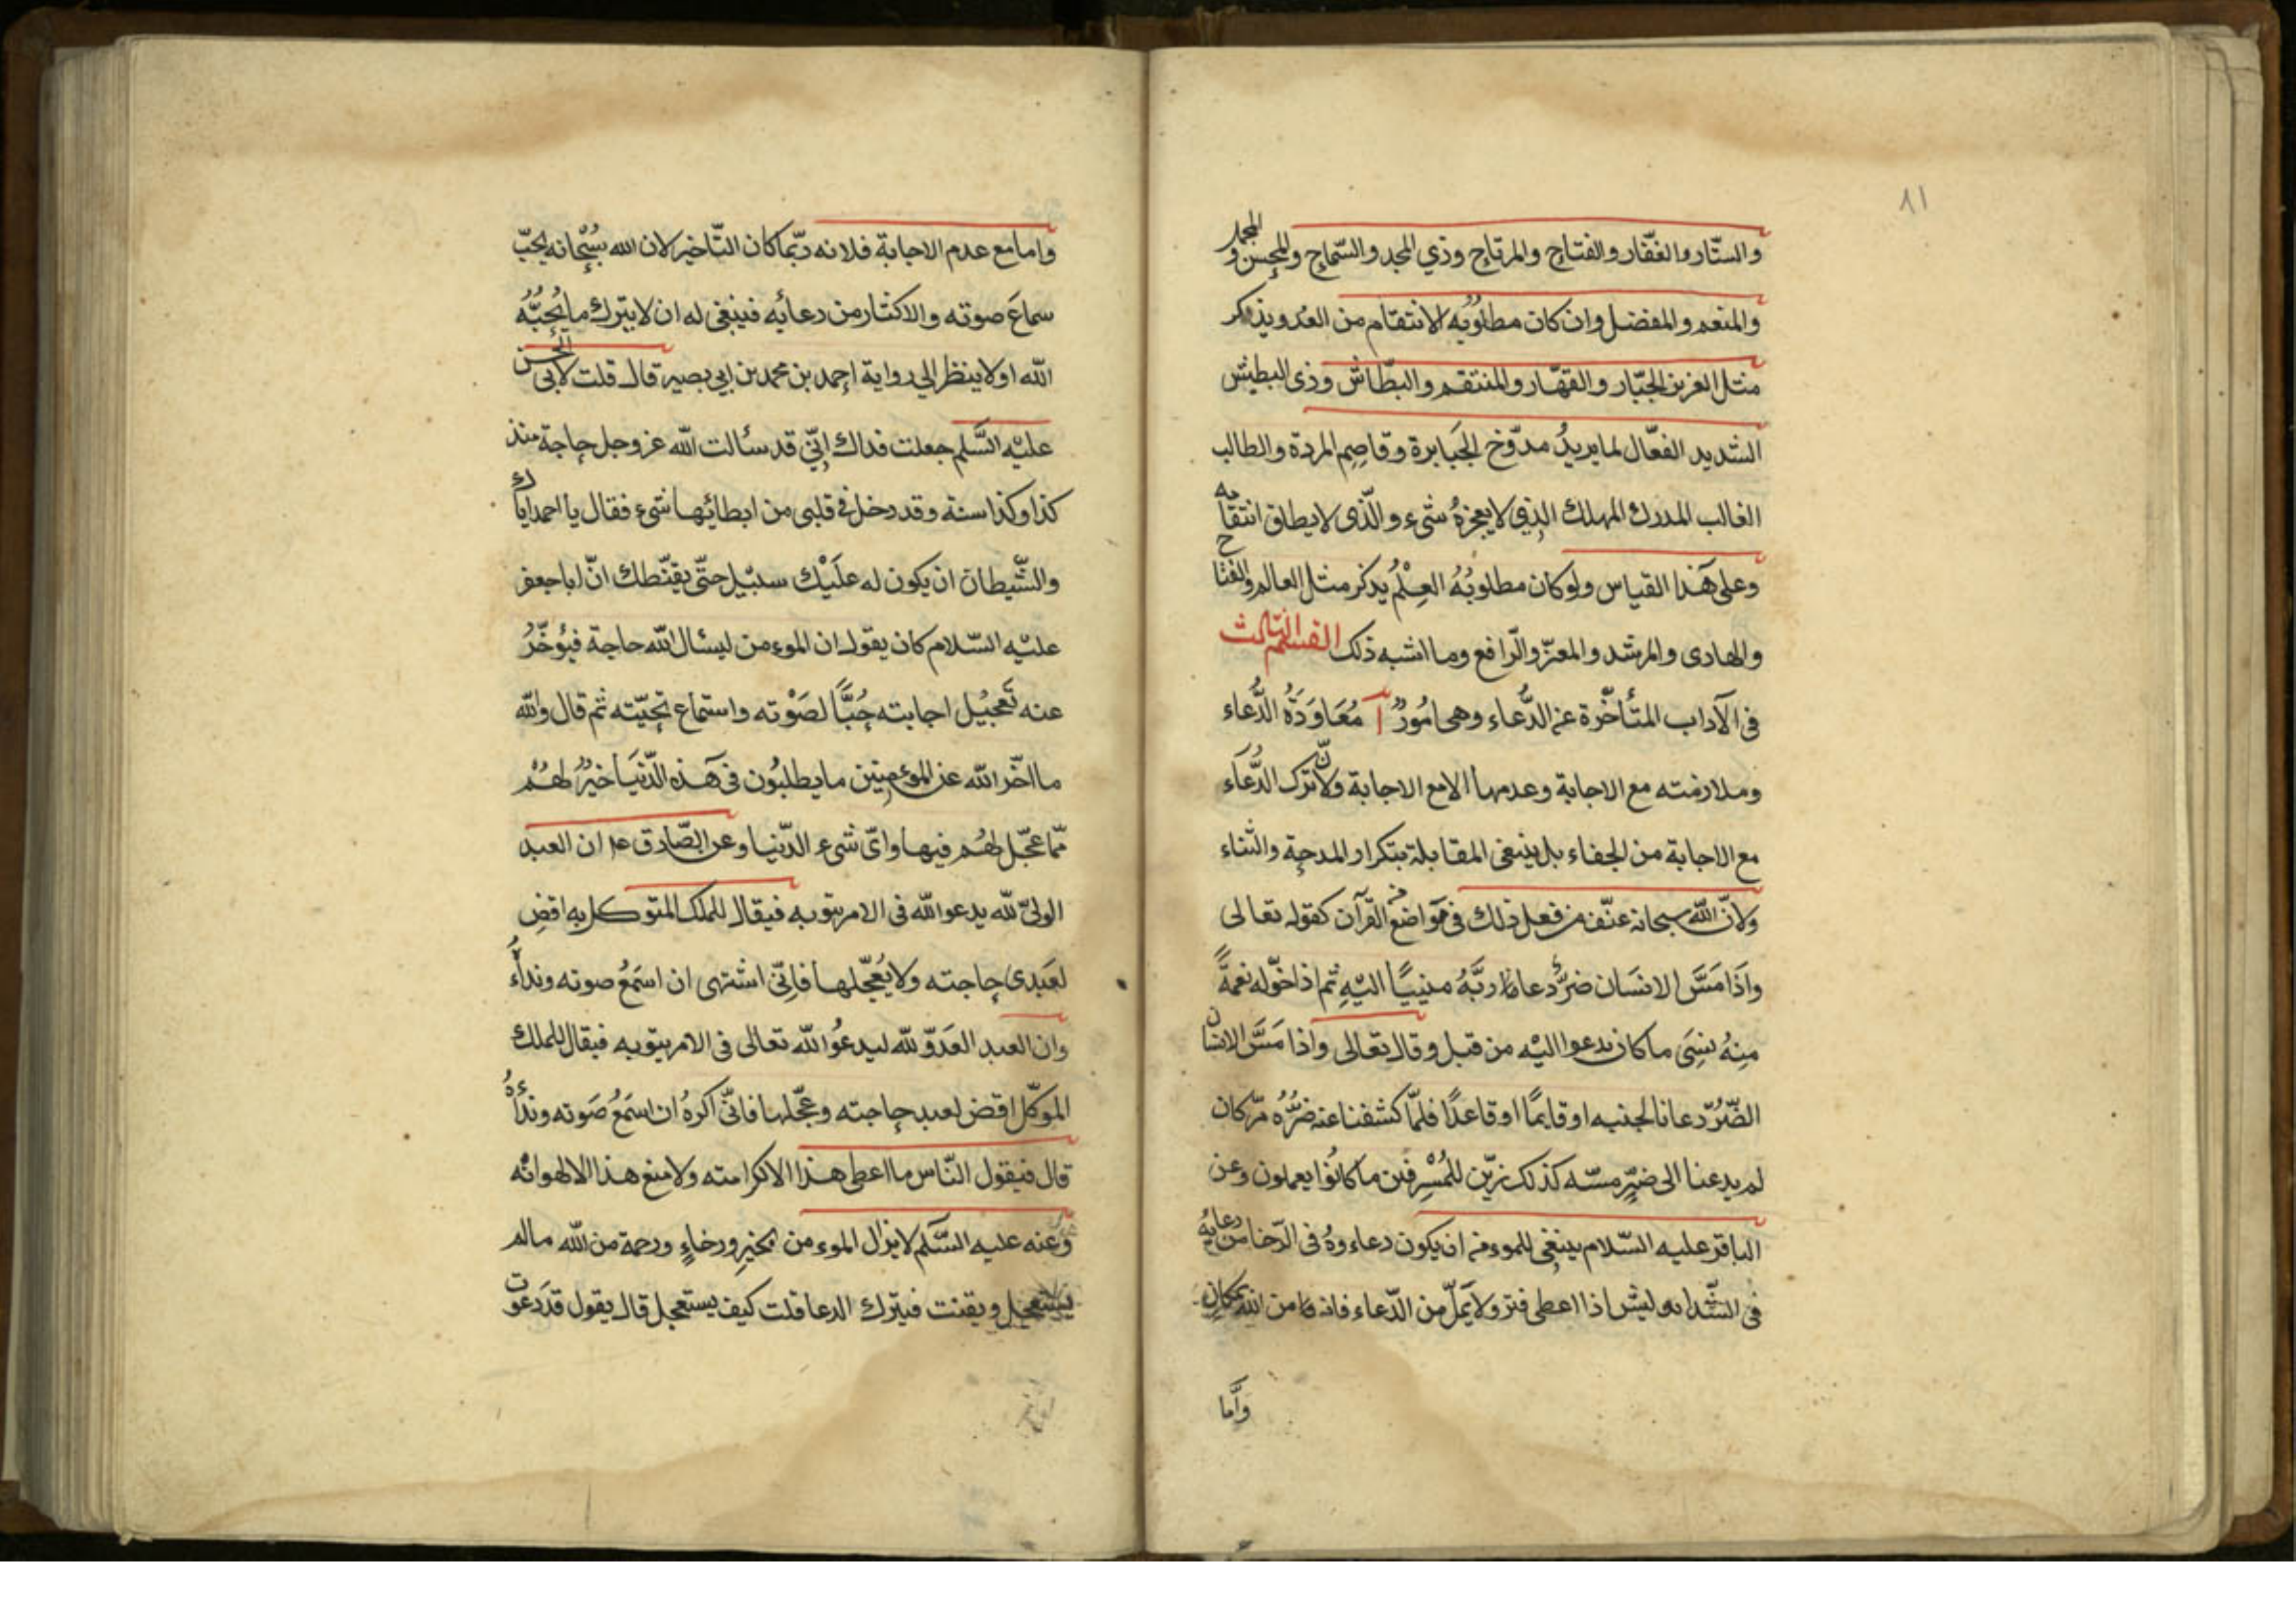 ٨١
والستّار والغفّار والفتاح والمرتاح وذي المجد والسّماح والمحسن والمجمل
والمنعم والمفضل وان كان مطلوبُه الانتقام من العدو يذكر
مثل العزيز الجبّار والقهّار والمنتقم والبطّاش وذى البطش
الشديد الفعّال لما يريدُ مدوّخ الجَبابرة وقاصِم المردة والطالب
الغالب المدرك المهلك الذي لا يعجزهُ شىء والّذى لا يطاق انتقامه
وعلى هَذا القياس ولو كان مطلوبُهُ العِلْمُ يذكر مثل العالم والفتاح
والهادى والمرشد والمعزّ والرّافع وما اشبه ذلك القسم الثالث
فى الآداب المتأخّرة عن الدُّعاء وهى امُورٌ آ مُعَاوَدَةُ الدُّعاء
وملازمته مع الاجابة وعدمها اما مع الاجابة ولانّ ترك الدُّعَاء
مع الاجابة من الجفاء بل ينبغى المقابلة بتكرار المدحة والثناء
ولانّ اللّه سبحانه عنّف من فعل ذلك فى مَواضع من القرآن كقوله تعالى
واذَا مَسَّ الانسَان ضرٌّ دعا ربَّهُ منيبًا اليْهِ ثم اذا خوّله نعمةً
مِنهُ نسِىَ ما كان يدعوا اليْه من قبل وقال تعالى واذا مَسَّ الانسان
الضّرُّ دعانا لجنبه او قايمًا او قاعدًا فلمّا كشفنا عنه ضرَّهُ مرّ كان
لم يدعنا الى ضرٍّ مسّه كذلك زيّن للمُسْرِفين ما كانُوا يعملون وعن
الباقر عليه السّلام ينبغى للموءمن ان يكون دعاءوهُ فى الرّخا من دعايه
فى الشّدة ليس اذا اعطى فتر ولا يَملّ من الدّعاء فانه من اللّه بمكان
وَأمّا
واما مع عدم الاجابة فلانه ربّما كان التّاخير لان الله سُبْحانه يحبّ
سماعَ صوته والاكثار من دعائه فينبغى له ان لا يترك ما يُحِبُّهُ
اللّه اولا ينظر الى رواية احمد بن محمد بن ابي بصير قال قلت لأبى الحسن
عليْه السَّلم جعلت فداك اِنّى قد سألت اللّه عز وجل حاجة منذ
كذا وكذا سنة وقد دخل فى قلبى من ابطائها شىء فقال يا احمد اياك
والشّيطان ان يكون له علَيْك سبيل حتّى يقنّطك انّ ابا جعفر
عليْه السّلام كان يقول ان الموءمن ليسئال اللّه حاجة فيُؤخّرُ
عنه تَعجيْل اجابته حُبًّا لصَوْته واستماع نحيبته ثم قال واللّه
ما اخّر اللّه عن الموءمنين ما يطلبُون فى هَذه الدّنيَا خيرٌ لهُمْ
ممّا عجّل لهُم فيها واىّ شىء الدّنيا وعن الصّادق ع ان العبد
الولىّ للّه يدعو اللّه فى الامر ينوبه فيقال للملك المتوكل به اقضِ
لعَبدى حاجته ولا يُعجّلها فاِنّى اشتهى ان اسمَعُ صوته ونداءُ
وان العبد العَدَوّ للّه ليدعُو اللّه تعالى فى الامر ينوبه فيقال للملك
الموكّل اقض لعبد حاجته وعجّلها فانّى اكرهُ ان اسمَعُ صَوته ونداءُهُ
قال فيقول النّاس ما اعطى هذا الا كرامته ولا منع هذا الا لهوانه
وعنه عليه السَّلم لا يزال الموءمن بخيرٍ ورخاءٍ ورحمة من اللّه مالم
يستعجل ويقنت فيترك الدعا قلت كيف يستعجل قال يقول قد دعوت